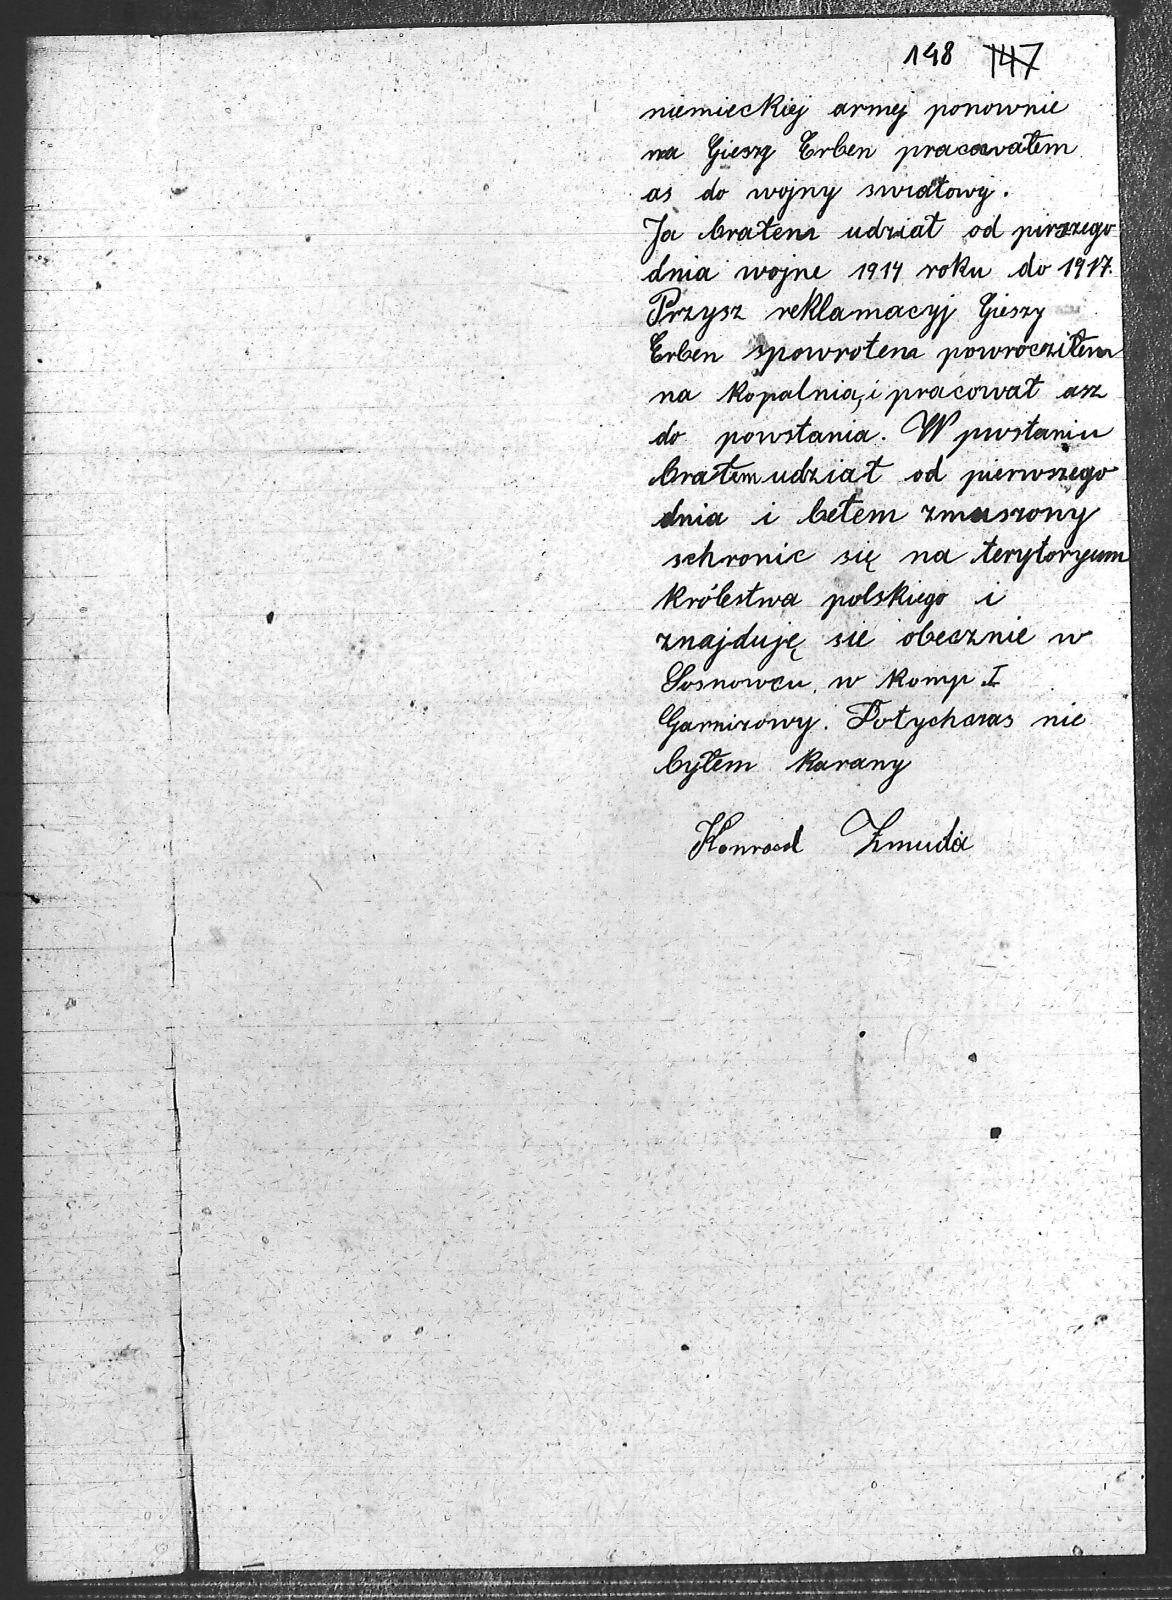 148 147
niemieckiej armej ponownie
na Gieszy Erben pracowałem
as do wojny swiatowy.
Ja brałem udział od pirszego
dnia wojne 1914 roku do 1917.
Przysz reklamacyj Gieszy
Erben spowrotem powrocziłem
na kopalnią, i pracował asz
do powstania. W pwstaniu
brałem udział od pierwszego
dnia i bełem zmuszony
schronic się na terytoryum
królestwa polskiego i
znajduję sie obecznie w
Sosnowcu, w komp. I
Garnizowy. Dotychczas nie
byłem karany
Konrad Zmuda